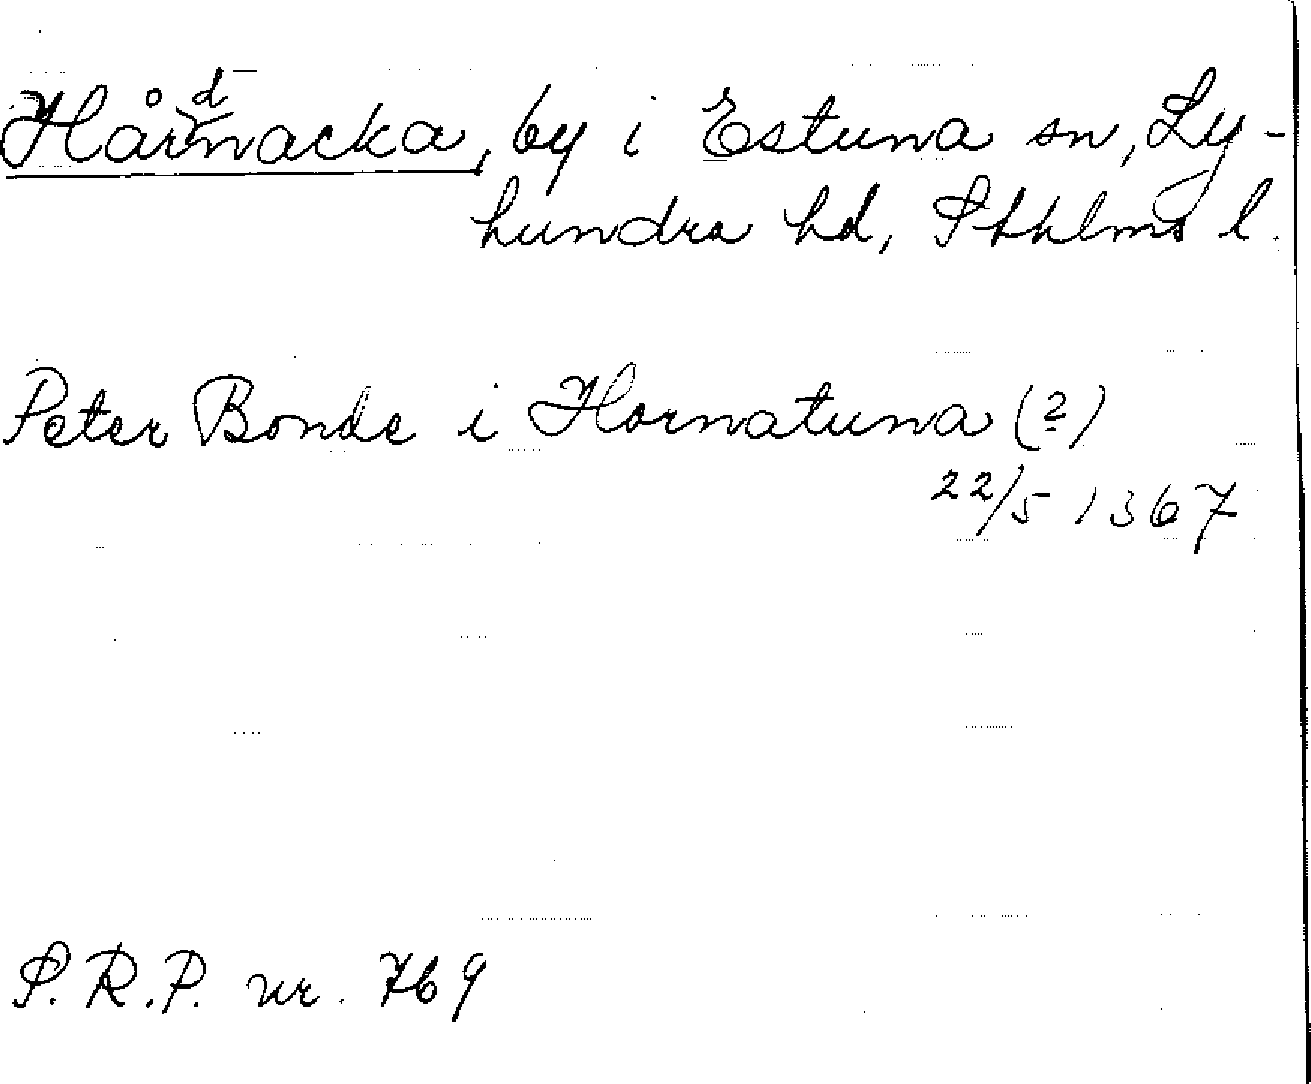 Hårdnacka, by i Estuna sn, Ly-
hundra hd, Sthlms l.
Peter Bonde i Hornatuna (?)
22/5 1367
S.R.P. nr. 769